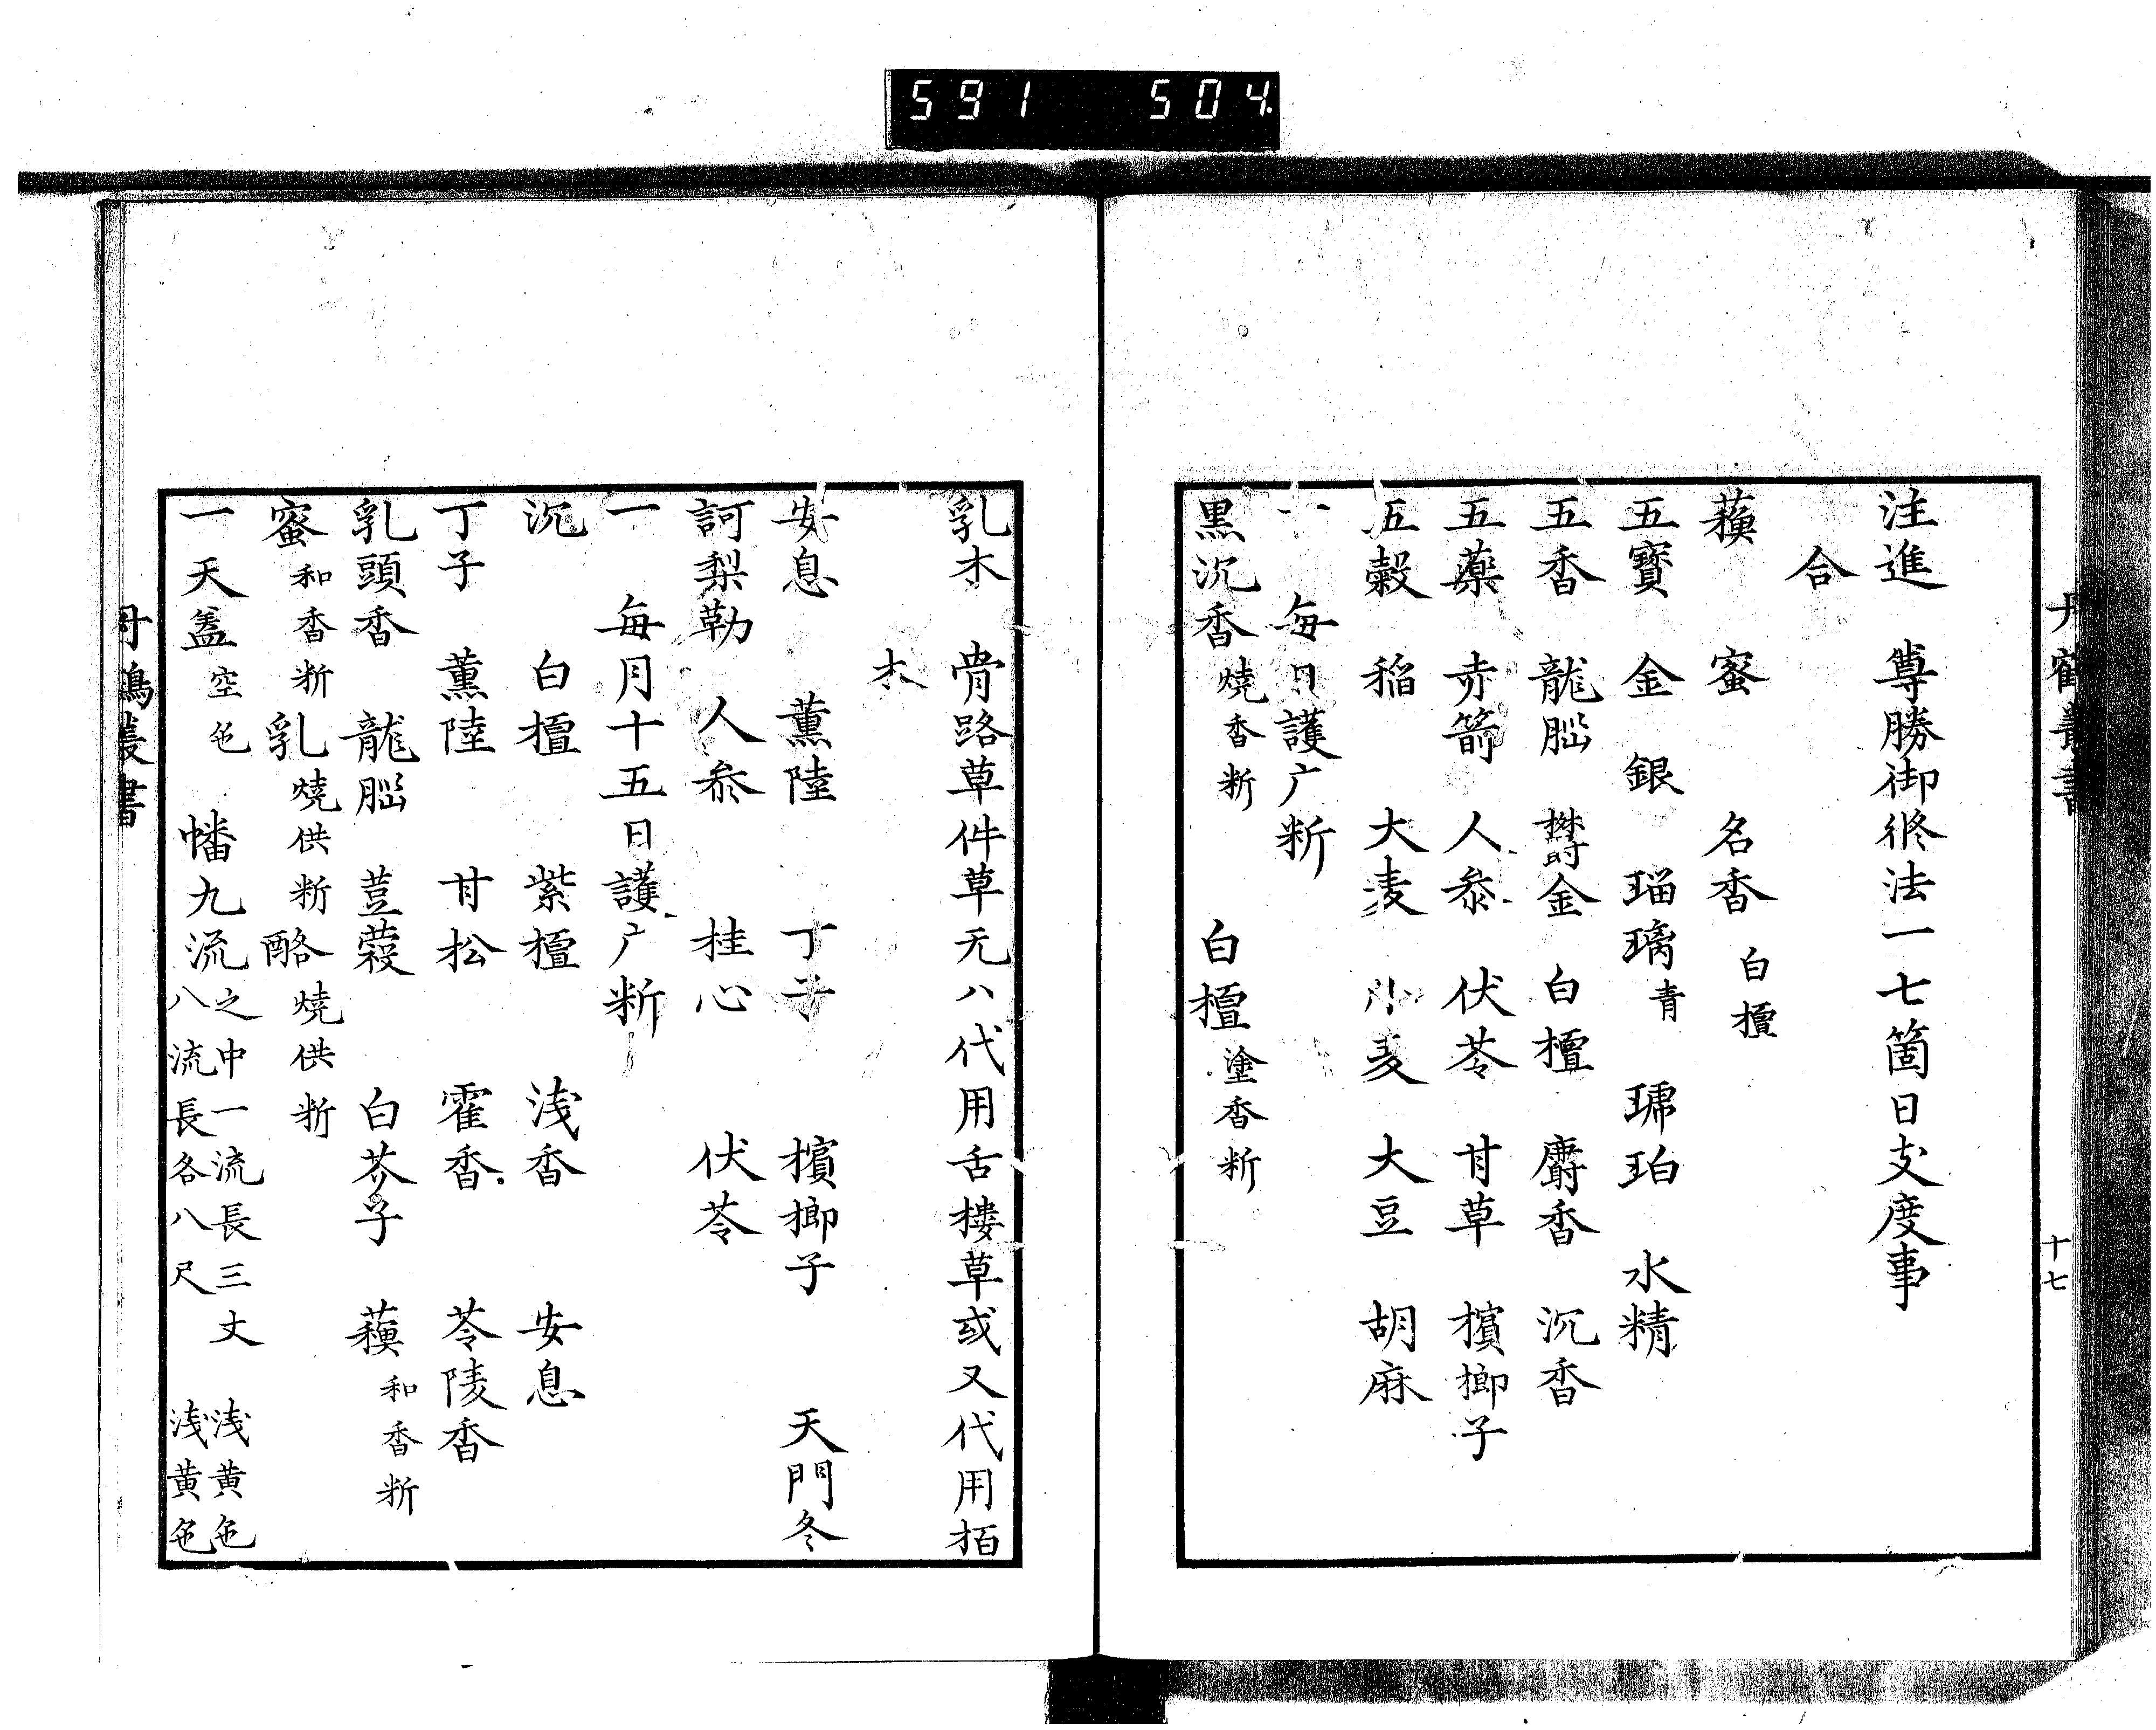 591 504
丹鶴叢書
十七
注進 尊勝御修法一七箇日支度事
合
蘓 蜜 名香 白檀
五寳 金 銀 瑠璃青 琥珀 水精
五香 龍脳 欝金 白檀 麝香 沉香
五藥 赤箭 人参 伏苓 甘草 檳榔子
五穀 稲 大麦 小麦 大豆 胡麻
一 毎日護广䉼
黒沉香燒香䉼 白檀塗香䉼
乳木 骨路草件草无八代用舌楼草或又代用栢
木
安息 薫陸 丁子 檳榔子 天門冬
訶梨勒 人参 桂心 伏苓
一 毎月十五日護广䉼
沉 白檀 紫檀 浅香 安息
丁子 薫陸 甘松 霍香 苓陵香
乳頭香 龍脳 荳蔲 白芥子 蘓和香䉼
蜜和香䉼 乳燒供䉼 酪燒供䉼
一天盖空色 幡九流之中一流長三丈 浅黄色
八流長各八尺 浅黄色
丹鶴叢書